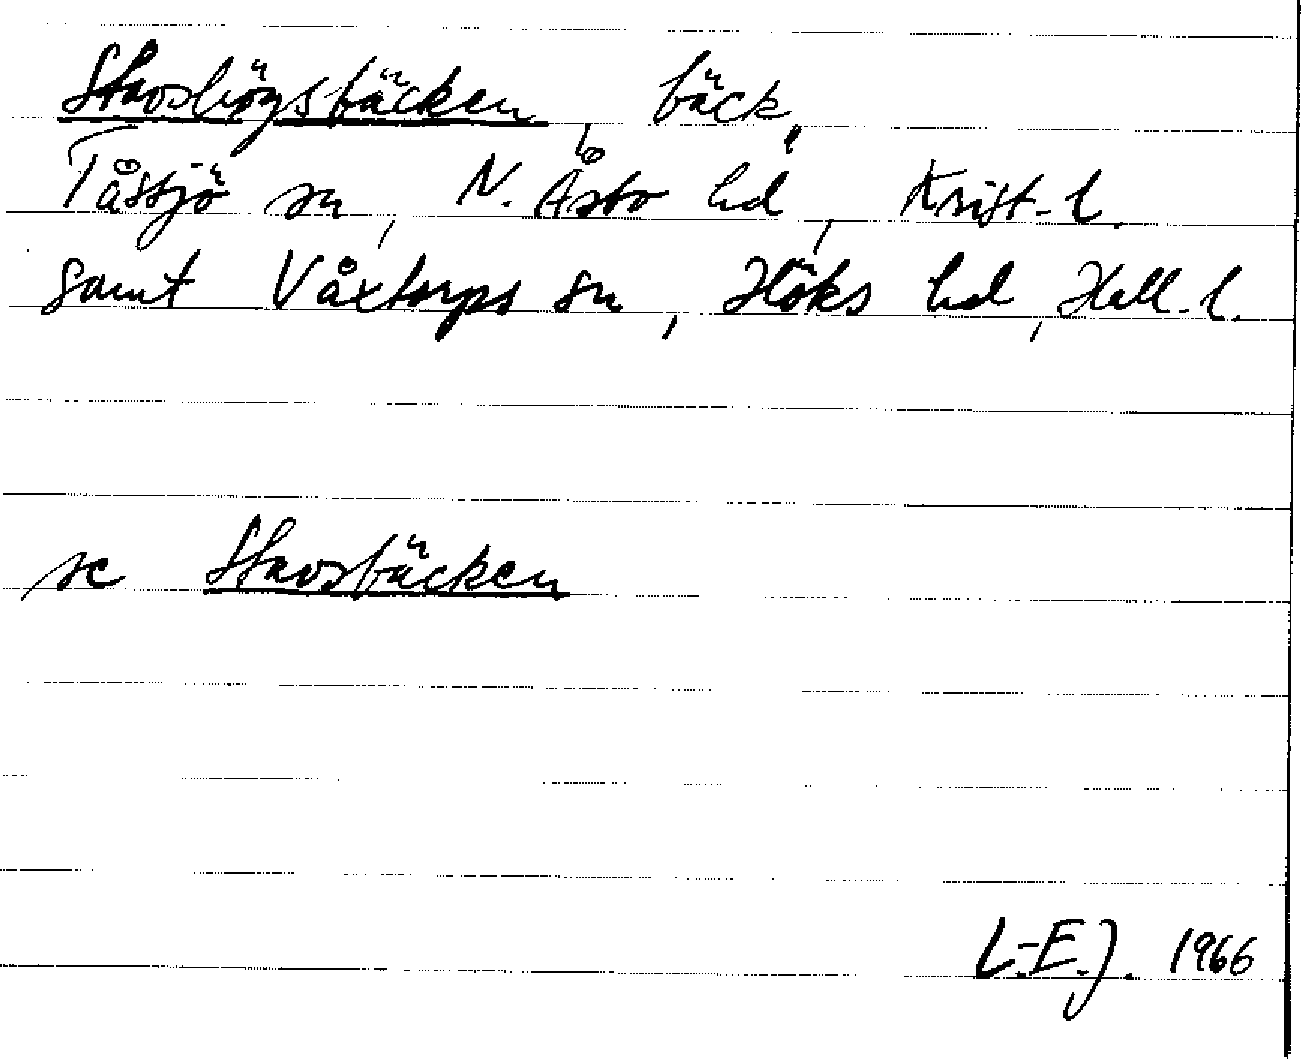 Stavshögsbäcken, bäck,
Tåssjö sn, N. Åsbo hd, Krist-l.
samt Våxtorps sn, Höks hd, Hall-l.
se Stavsbäcken
L.-E.J. 1966